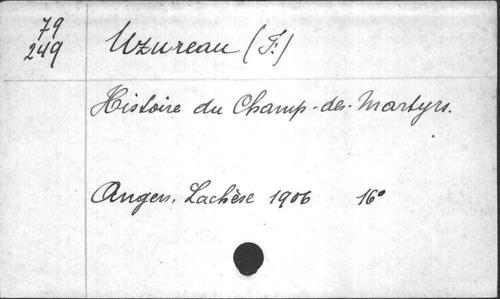 79
249
Uzureau (F.)
Histoire du Champ-des-Martyrs.
Angers, Lachèse 1906 16°